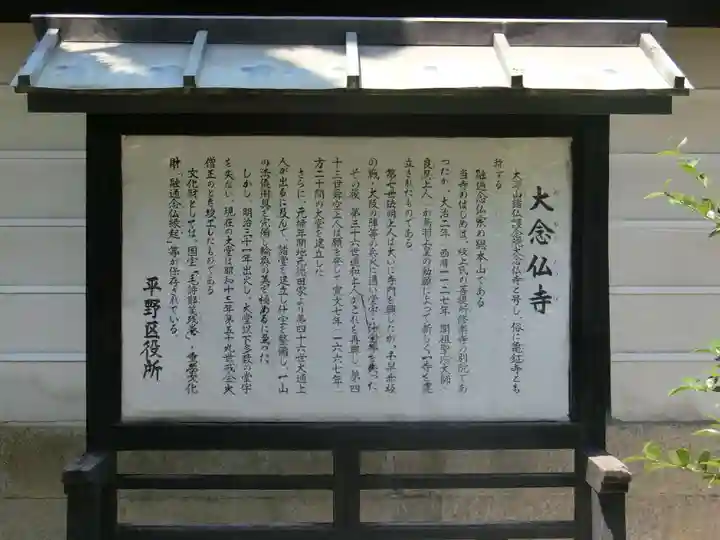 大念仏寺
大源山諸仏護念院大念仏寺と号し、俗に亀鉦寺とも
称する
融通念仏宗の総本山である
当寺のはじめは、坂上氏の菩提所修楽寺の別院であ
ったが、大治二年(西暦一一二七年)開祖聖応大師
良忍上人が鳥羽上皇の勅願によって新しく一寺を建
立されたものである
第七世法明上人は大いに寺門を興したが、
の戦、大阪の陣等の兵火に遇い堂宇、什宝等を失った
その後、第三十六世道和上人がこれを再興し、第四
十三世舜空上人は願を発して寛文七年(一六六七年)
方二十間の大堂を建立した
さらに、元禄年間地元徳田家より第四十六世大通上
人が出るに及んで、諸堂を建立し什宝を整備し、一山
の法儀規具を完備し輪奐の美を極めるに至った。
しかし、明治三十一年出火し、大堂以下多数の堂宇
を失ない、現在の大堂は昭和十三年第五十九世戒全大
僧正のとき竣工したものである
文化財としては、国宝「毛詩鄭箋残巻」、重要文化
財「融通念仏縁起」等が保存されている。
平野区役所